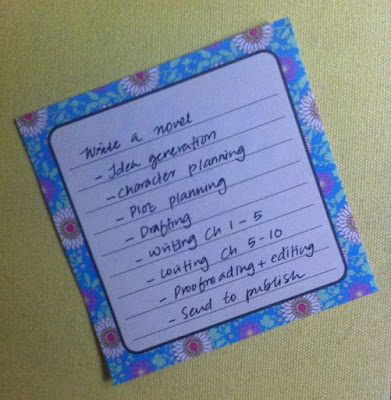 Write a novel
- Idea generation
- Character planning
- Plot planning
- Drafting
- Writing Ch 1 - 5
- Writing Ch 5 - 10
- Proofreading + editing
- Send to publish